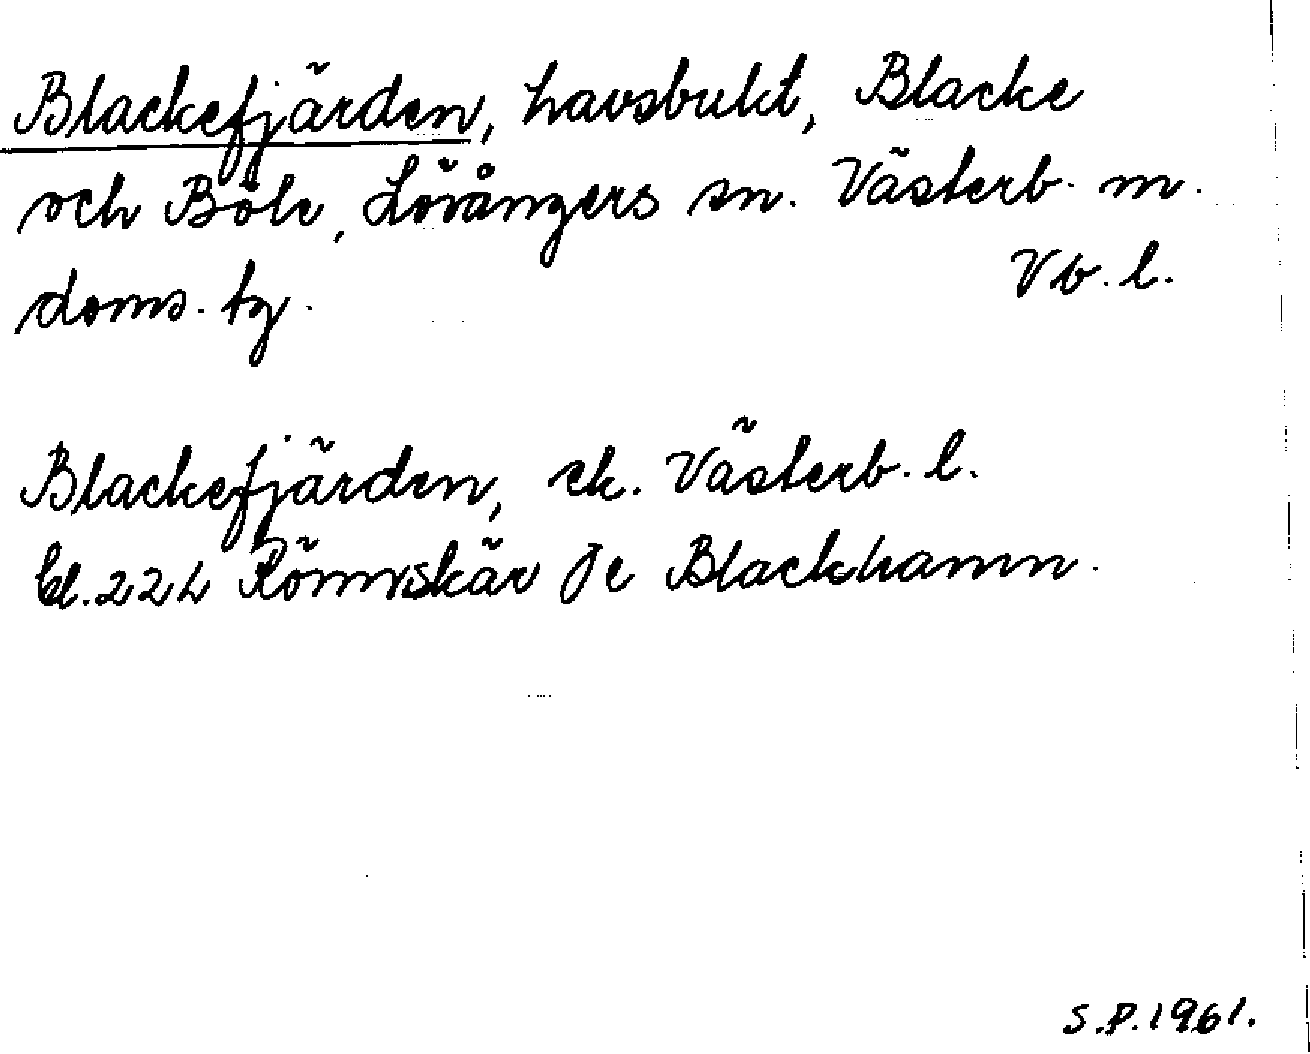 Blackefjärden, havsbukt, Blacke
och Böle, Lövångers sn. Västerb. m.
doms. tg.
Vb. l.
Blackefjärden, ek. Västerb. l.
bl. 22 L Rönnskär J e Blackhamn.
S.P. 1961.